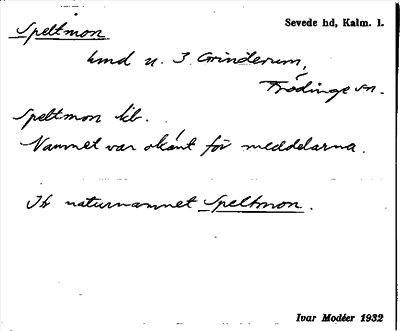 Speltmon
Sevede hd, Kalm. l.
hmd u. 3 Grinderum,
Frödinge sn.
Speltmon kb.
Namnet var okänt för meddelarna.
Itr naturnamnet Speltmon.
Ivar Modéer 1932